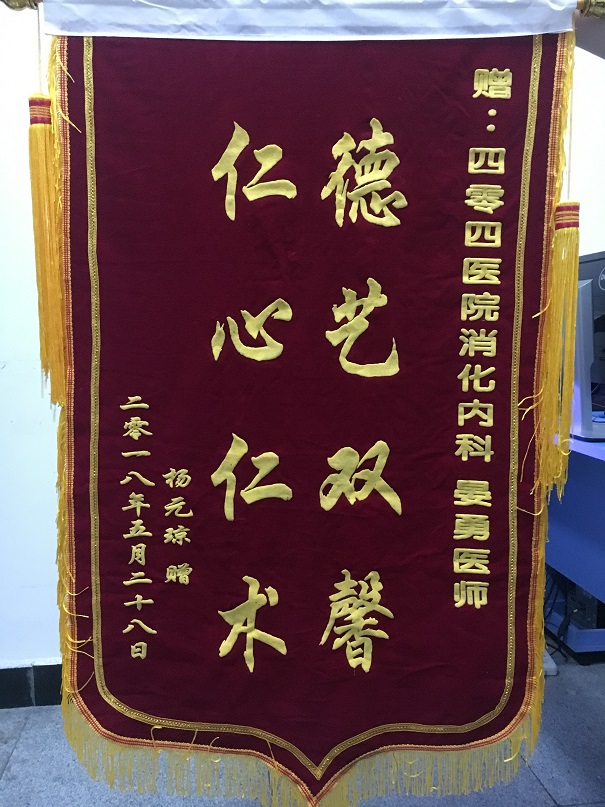 赠：四零四医院消化内科 晏勇医师
德艺双馨
仁心仁术
杨元琼 赠
二零一八年五月二十八日